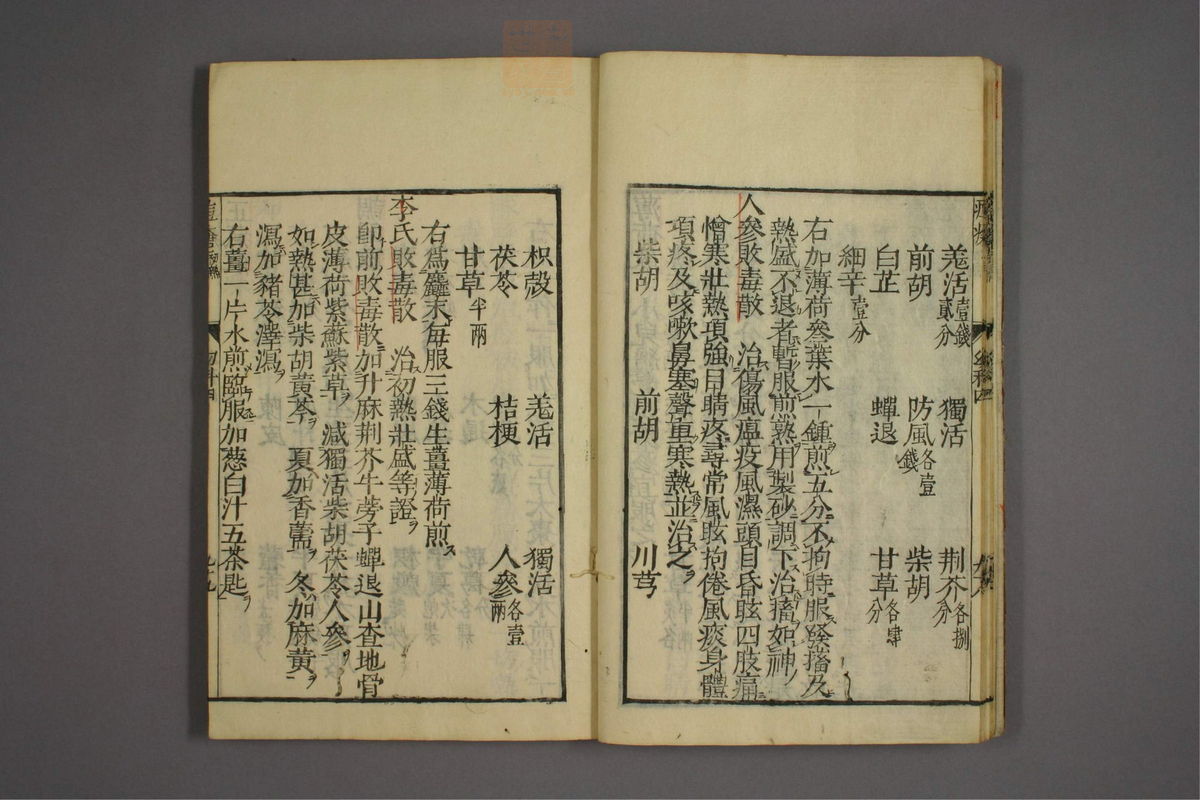 羗活壹錢貳分 獨活 荆芥各捌分
前胡 防風各壹錢 柴胡
白芷 蟬退 甘草各肆分
細辛壹分
右加薄荷叄葉水一鍾煎五分不拘時服發搐及
熱盛不退者暫服煎熟用製砂調下治搐如神
人參敗毒散 治傷風瘟疫風濕頭目昏眩四肢痛
憎寒壯熱項強目睛疼尋常風眩拘倦風痰身體
項疼及咳嗽鼻塞聲重寒熱並治之
柴胡 前胡 川芎
枳殼 羗活 獨活
茯苓 桔梗 人參各壹兩
甘草半兩
右爲麤末每服三錢生薑薄荷煎
李氏敗毒散 治初熱壯盛等證
卽前敗毒散加升麻荆芥牛蒡子蟬退山查地骨
皮薄荷紫蘇紫草 減獨活柴胡茯苓人參
如熱甚加柴胡黃芩 夏加香薷 冬加麻黃
瀉加豬苓澤瀉
右薑一片水煎臨服加葱白汁五茶匙